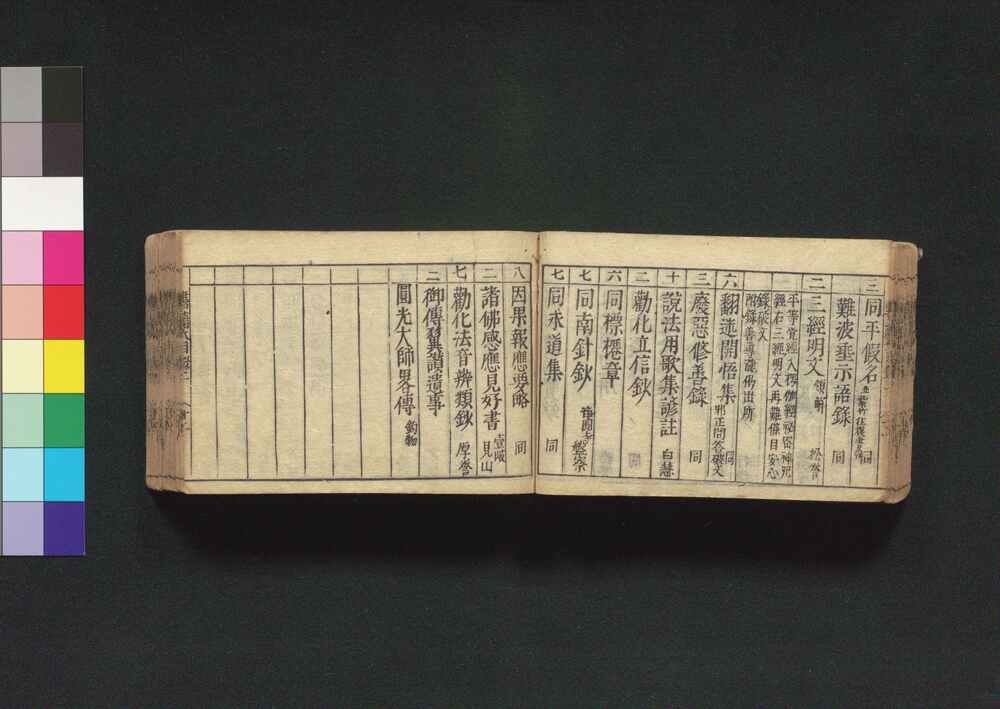 三 同平假名 同
難波垂示語録 同
二 三經明文 領解 松誉
平等覚經八楞伽經秘密神咒
經右三經明文再難催目安心
鈔破文
附録善導流佛出所
六 翻迷開悟集 邪正問答破文 同
三 廢惡修善録 同
十 説法用歌集諺註 白慧
二 勸化立信鈔 同
六 同標楷章
七 同南針鈔 盤察
七 同求道集 同
八 因果報應要略 同
二 諸佛感應見好書 壹岐 見山
七 勸化法音類鈔 厚誉
二 御傳翼讃遺事
圓光大師畧傳 釣物